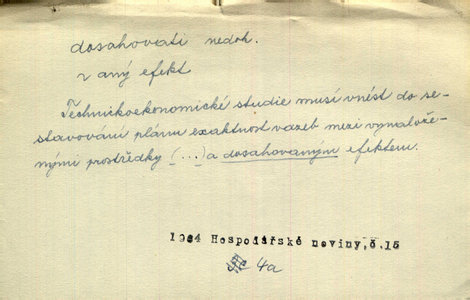 dosahovati nedok.
v aný efekt
Technikoekonomické studie musí vnést do se-
stavování plánu exaktnost vazeb mezi vynalože-
nými prostředky (...) a dosahovaným efektem.
1964 Hospodářské noviny,č.15
4a